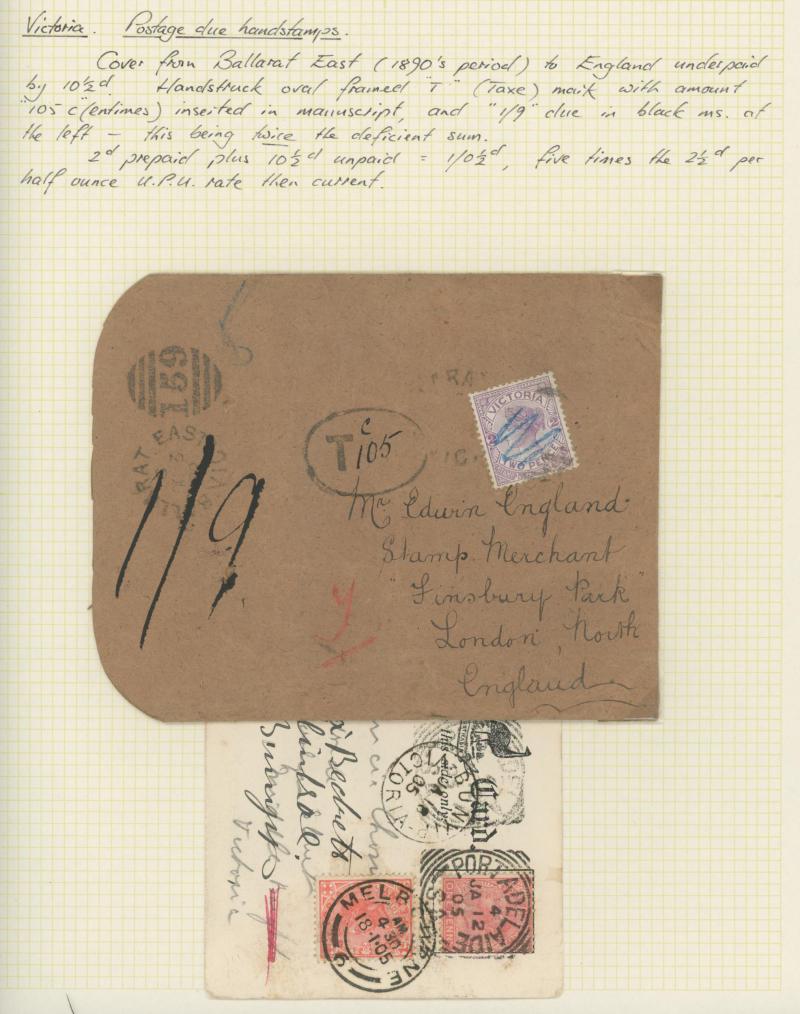 Victoria. Postage due handstamps.
Cover from Ballarat East (1890's period) to England underpaid
by 10½d. Handstruck oval framed "T" (Taxe) mark with amount
"105 c"(entimes) inserted in manuscript, and "1/9" due in black ms. at
the left – this being twice the deficient sum.
2d prepaid plus 10½d unpaid = 1/0½d, five times the 2½d per
half ounce U.P.U. rate then current.
159
RAT EAST
VICTORIA
2 2
TWO PENCE
T c 105
1/9
Mr Edwin England
Stamp Merchant
"Finsbury Park"
London, North
England
this side only
Card.
VICTORIA
05
Victoria
MELBOURNE
AM
4 30
18·1·05
9
PORT ADELAIDE
4
JA 12
05
S.A